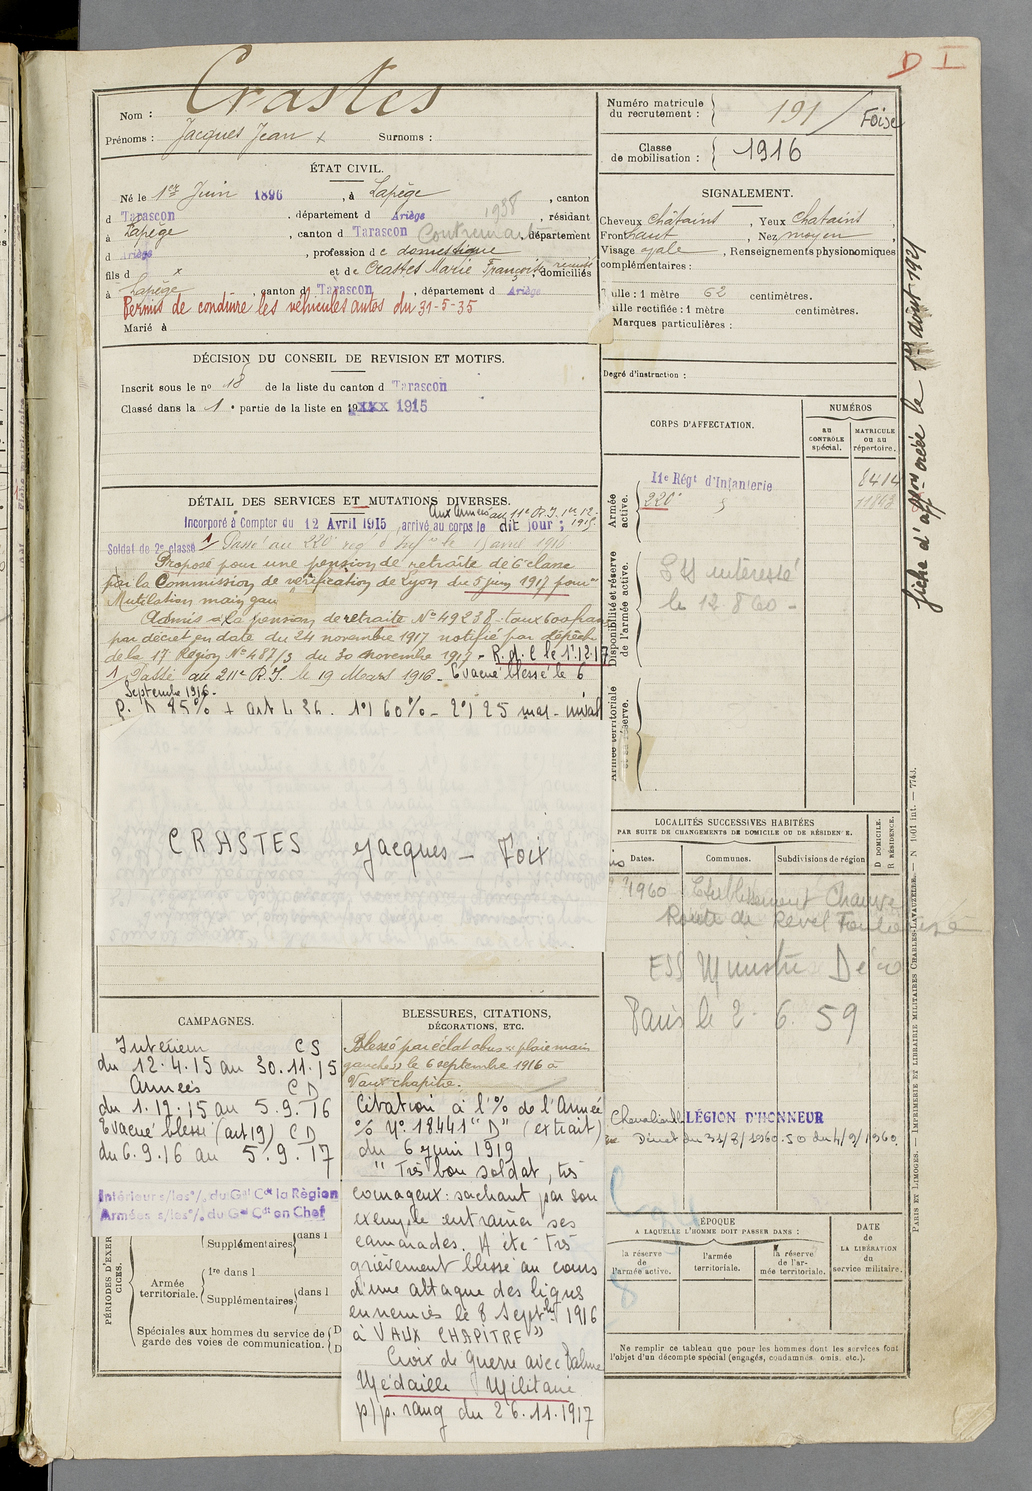 D I
Nom : Crastes
Prénoms : Jacques Jean Surnoms :
Numéro matricule
du recrutement : 191 / Foix
Classe
de mobilisation : 1916
ÉTAT CIVIL.
Né le 1er Juin 1896 , à Lapège , canton
d Tarascon , département d Ariège 1938 , résidant
à Lapège , canton d Tarascon , département
d Ariège , profession de domestique
fils d x et de Crastes Marie Françoise , domiciliés
à Lapège , canton d Tarascon , département d Ariège
Permis de conduire les véhicules autos du 31-5-35
Marié à
SIGNALEMENT.
Cheveux châtains , Yeux chatains ,
Front haut , Nez moyen ,
Visage ovale , Renseignements physionomiques
complémentaires :
Taille : 1 mètre 62 centimètres.
Taille rectifiée : 1 mètre centimètres.
Marques particulières :
Degré d'instruction :
DÉCISION DU CONSEIL DE REVISION ET MOTIFS.
Inscrit sous le no 18 de la liste du canton d Tarascon
Classé dans la 1e partie de la liste en 19xxx 1915
CORPS D'AFFECTATION.
NUMÉROS
au
CONTRÔLE
spécial.
MATRICULE
ou au
répertoire.
Armée
active.
11e Régt d'Infanterie 8414
220e
Disponibilité et réserve
de l'armée active.
ESS intéressé
le 12 8 60 -
Armée territoriale
et sa réserve.
fiche d'appr créée le 1er août 1921
DÉTAIL DES SERVICES ET MUTATIONS DIVERSES.
Aux Armées au 11e R.I. 1er 12-1915
Incorporé à Compter du 12 Avril 1915 , arrivé au corps le dit jour ;
Soldat de 2e classe Passé au 220e rég d'Infie le 15 avril 1916
Proposé pour une pension de retraite de 6e classe
par la Commission de vérification de Lyon du 5 juin 1917 pour "
Mutilation main gau
Admis à la pension de retraite No 49238 - taux 600 francs
par décret en date du 24 novembre 1917 notifié par dépêch
de la 17e Région No 487/3 du 30 novembre 1917 - R.d.C le 1.12.17
1 Passé au 211e R.I. le 19 Mars 1916 - Evacué blessé le 6
Septembre 1916 -
P. D 85% + art L 36 . 1°) 60% - 2°) 25
CRASTES Jacques - Foix
LOCALITÉS SUCCESSIVES HABITÉES
PAR SUITE DE CHANGEMENTS DE DOMICILE OU DE RÉSIDENCE.
Dates.
Communes.
Subdivisions de région
D DOMICILE.
R RÉSIDENCE.
1960 Etablissement
Route de Revel Toulouse
ESS Ministre Déco
Paris le 2. 6. 59
Chevalier de LÉGION D'HONNEUR
Décret du 31/8/1960. JO du 4/9/1960.
CAMPAGNES.
Intérieur CS
du 12.4.15 au 30.11.15
Armées CD
du 1.12.15 au 5.9.16
Evacué blessé (art 19) CD
du 6.9.16 au 5.9.17
Intérieur s/les o/ du Gal Cdt la Région
Armées s/les o/ du Gal Cdt en Chef
PÉRIODES D'EXERCICES.
Supplémentaires dans l
Armée
territoriale.
1re dans l
Supplémentaires dans l
Spéciales aux hommes du service de
garde des voies de communication.
D
D
BLESSURES, CITATIONS,
DÉCORATIONS, ETC.
Blessé par éclat obus « plaie main
gauche » le 6 septembre 1916 à
Vaux chapitre.
Citation à l'% de l'Armée
% No 18441 "D" (extrait)
du 6 juin 1919
" Très bon soldat, très
courageux : sachant par son
exemple entraîner ses
camarades. A été très
grièvement blessé au cours
d'une attaque des lignes
ennemies le 8 Septbre 1916
à VAUX CHAPITRE "
Croix de Guerre avec Palme
Médaille Militaire
p/p. rang du 26.11.1917
ÉPOQUE
A LAQUELLE L'HOMME DOIT PASSER DANS :
la réserve
de
l'armée active.
l'armée
territoriale.
la réserve
de l'ar-
mée territoriale.
DATE
de
LA LIBÉRATION
du
service militaire.
Ne remplir ce tableau que pour les hommes dont les services font
l'objet d'un décompte spécial (engagés, condamnés, omis, etc.).
PARIS ET LIMOGES. — IMPRIMERIE ET LIBRAIRIE MILITAIRES CHARLES-LAVAUZELLE. — N 1001 int. — 7743.